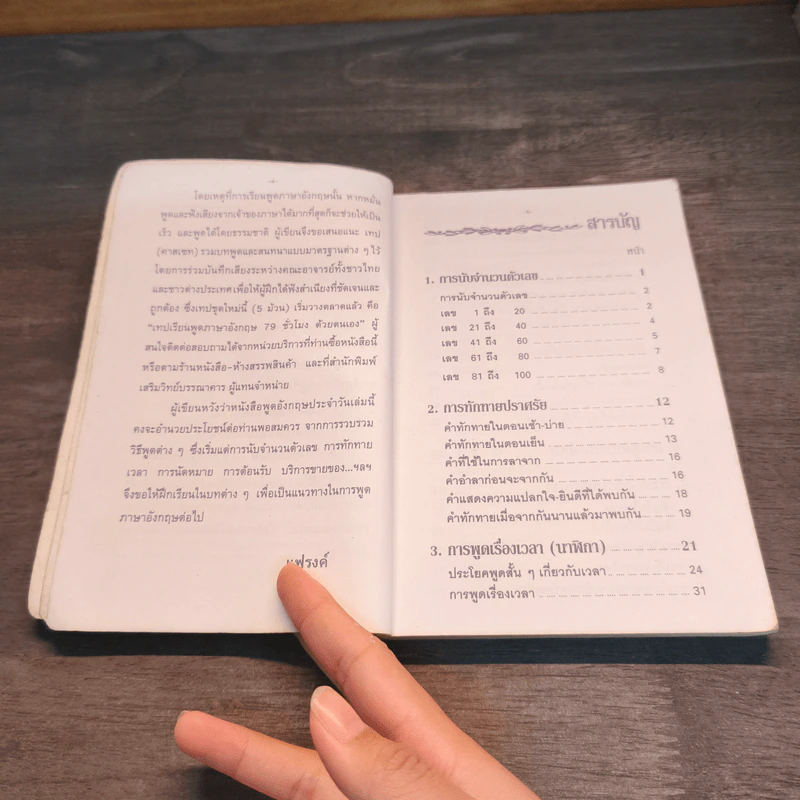 โดยเหตุที่การเรียนพูดภาษาอังกฤษนั้น หากหมั่น
พูดและฟังเสียงจากเจ้าของภาษาได้มากที่สุดก็จะช่วยให้เป็น
เร็ว และพูดได้โดยธรรมชาติ ผู้เขียนจึงขอเสนอแนะ เทป
(คาสเซท) รวมบทพูดและสนทนาแบบมาตรฐานต่าง ๆ ไว้
โดยการร่วมบันทึกเสียงระหว่างคณะอาจารย์ทั้งชาวไทย
และชาวต่างประเทศ เพื่อให้ผู้ฝึกได้ฟังสำเนียงที่ชัดเจนและ
ถูกต้อง ซึ่งเทปชุดใหม่นี้ (5 ม้วน) เริ่มวางตลาดแล้ว คือ
"เทปเรียนพูดภาษาอังกฤษ 79 ชั่วโมง ด้วยตนเอง" ผู้
สนใจติดต่อสอบถามได้จากหน่วยบริการที่ท่านซื้อหนังสือนี้
หรือตามร้านหนังสือ-ห้างสรรพสินค้า และที่สำนักพิมพ์
เสริมวิทย์บรรณาคาร ผู้แทนจำหน่าย
ผู้เขียนหวังว่าหนังสือพูดอังกฤษประจำวันเล่มนี้
คงจะอำนวยประโยชน์ต่อท่านพอสมควร จากการรวบรวม
วิธีพูดต่าง ๆ ซึ่งเริ่มแต่การนับจำนวนตัวเลข การทักทาย
เวลา การนัดหมาย การต้อนรับ บริการขายของ...ฯลฯ
จึงขอให้ฝึกเรียนในบทต่าง ๆ เพื่อเป็นแนวทางในการพูด
ภาษาอังกฤษต่อไป
แฟรงค์
สารบัญ
หน้า
1. การนับจำนวนตัวเลข 1
การนับจำนวนตัวเลข 2
เลข 1 ถึง 20 2
เลข 21 ถึง 40 4
เลข 41 ถึง 60 5
เลข 61 ถึง 80 7
เลข 81 ถึง 100 8
2. การทักทายปราศรัย 12
คำทักทายในตอนเช้า-บ่าย 12
คำทักทายในตอนเย็น 13
คำที่ใช้ในการลาจาก 16
คำอำลาก่อนจะจากกัน 16
คำแสดงความแปลกใจ-ยินดีที่ได้พบกัน 18
คำทักทายเมื่อจากกันนานแล้วมาพบกัน 19
3. การพูดเรื่องเวลา (นาฬิกา) 21
ประโยคพูดสั้น ๆ เกี่ยวกับเวลา 24
การพูดเรื่องเวลา 31